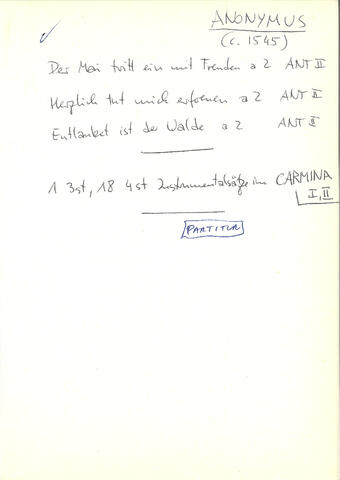 ANONYMUS
(c. 1545)
Der Mai tritt ein mit Freuden a 2 ANT II
Herzlich tut mich erfreuen a 2 ANT II
Entlaubet ist der Walde a 2 ANT II
1 3st, 18 4st Instrumentalsätze im CARMINA
I, II
PARTITUR